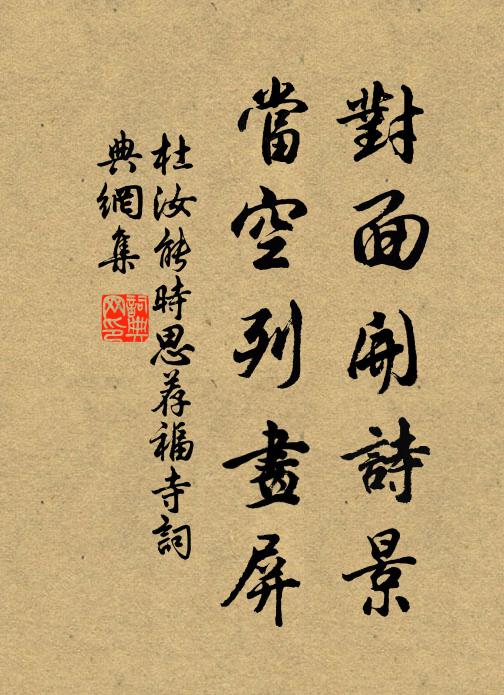 對面開詩景
當空列畫屏
杜汝能時思荐福寺詞
典網集
詞典
网印